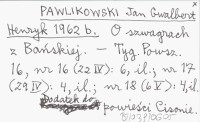 PAWLIKOWSKI Jan Gwalbert
Henryk 1962 b. O szwagrach
z Bańskiej. — Tyg. Powsz.
16, nr 16 (22 IV): 6, il.; nr 17
(29 IV): 4, il.; nr 18 (6 V): 4, il.
Dodatek do powieści Cisonie.